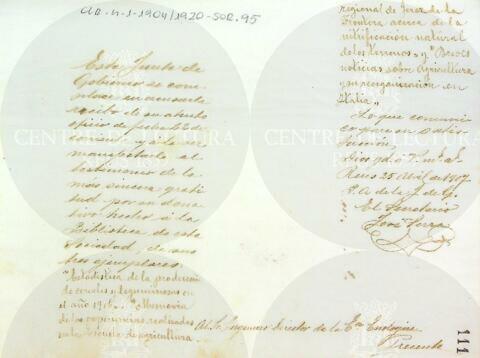 aa-4-1-1904/1920-SOR.95
Esta Junta de
Gobierno se com-
place en acusarle
recibo de su atento
oficio de fecha
y a la vez
manifestarle el
testimonio de la
más sincera grati-
tud por el dona-
tivo hecho a la
Biblioteca de esta
Sociedad, de sus
tres ejemplares
"Estadística de la producción
de cereales y leguminosas en
el año 1916" "Memoria
de las experiencias realizadas
en la Escuela de agricultura
regional de Jerez de la
Frontera acerca de la
nitrificación natural
de los terrenos" y "Breves
noticias sobre Agricultura
y su organización en
Italia"
Lo que comunico
Dios gde. á V. m. a.
Reus 25 Abril de 1917
P. A. de la J. de G.
El Secretario
José Serra
Al Sr Ingeniero Director de la Eon Enológica
Presente
111
CENTRE DE LECTURA
CENTRE DE LECTURA